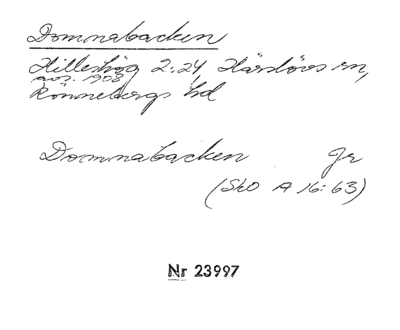 Domnabacken
Hilleshög 2:24, Härslövs sn,
avs. 1908
Rönnebergs hd
Domnabacken Gr
(SkO A 16:63)
Nr 23997